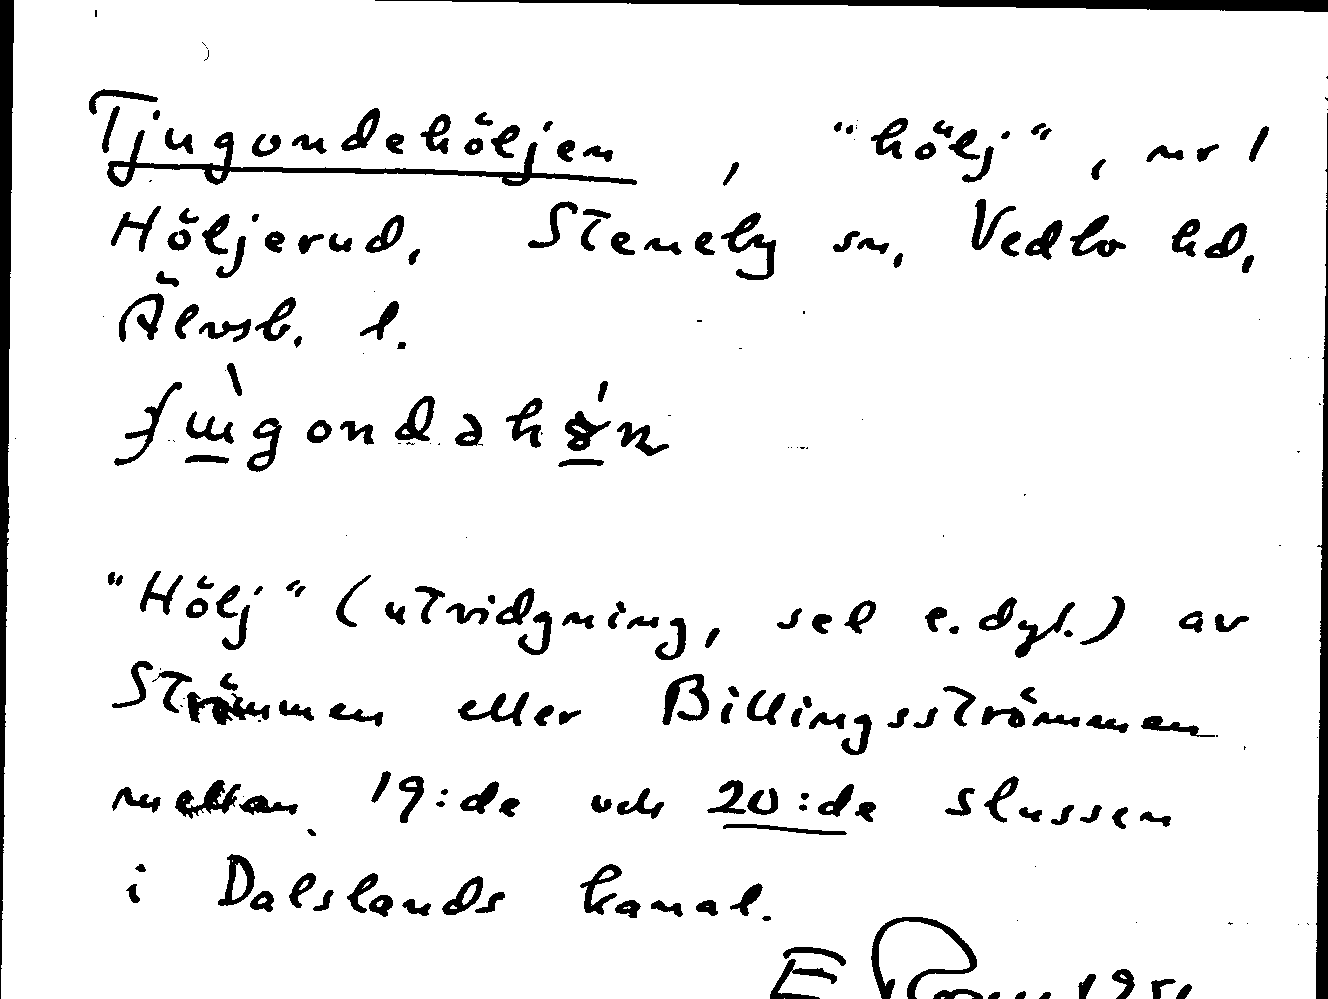 Tjugondehöljen, "hölj", nr 1
Höljerud, Steneby sn, Vedbo hd,
Älvsb. l.
"Hölj" (utvidgning, sel e.dyl.) av
Strömmen eller Billingsströmmen
mellan 19:de och 20:de slussen
i Dalslands kanal.
E